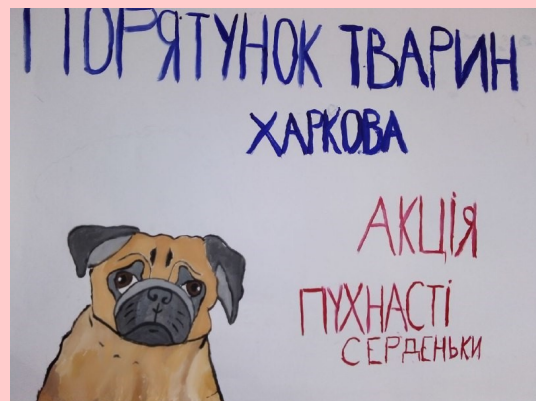 ПОРЯТУНОК ТВАРИН
ХАРКОВА
АКЦІЯ
ПУХНАСТІ
СЕРДЕНЬКИ